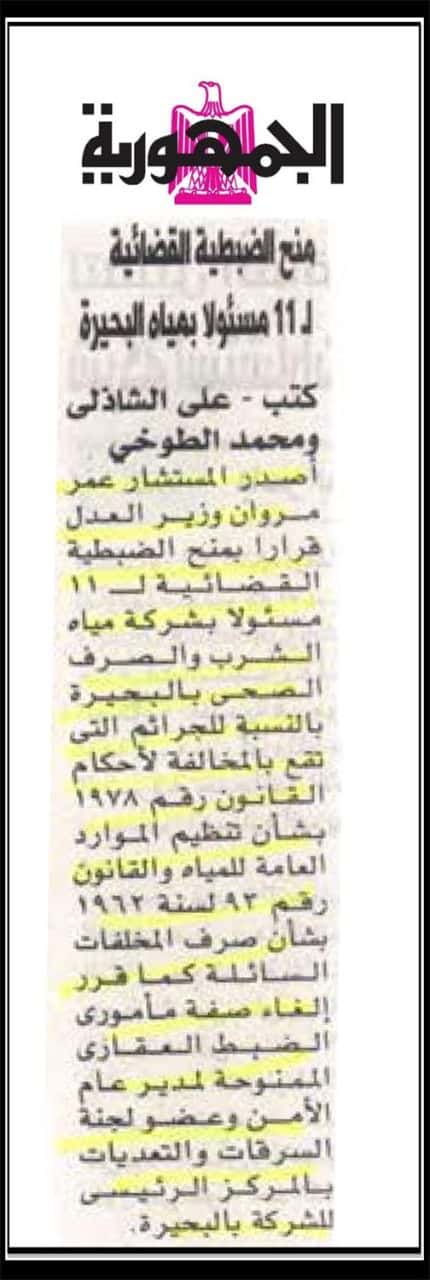 الجمهورية
منح الضبطية القضائية
لـ 11 مسئولا بمياه البحيرة
كتب - على الشاذلى
ومحمد الطوخي
أصدر المستشار عمر
مروان وزير العدل
قرارا بمنح الضبطية
القضائية لـ ١١
مسئولا بشركة مياه
الشرب والصرف
الصحى بالبحيرة
بالنسبة للجرائم التى
تقع بالمخالفة لأحكام
القانون رقم ١٩٧٨
بشأن تنظيم الموارد
العامة للمياه والقانون
رقم ٩٣ لسنة ١٩٦٢
بشأن صرف المخلفات
السائلة كما قرر
إلغاء صفة مأمورى
الضبط العقازى
الممنوحة لمدير عام
الأمن وعضو لجنة
السرقات والتعديات
بالمركز الرئيسى
للشركة بالبحيرة.